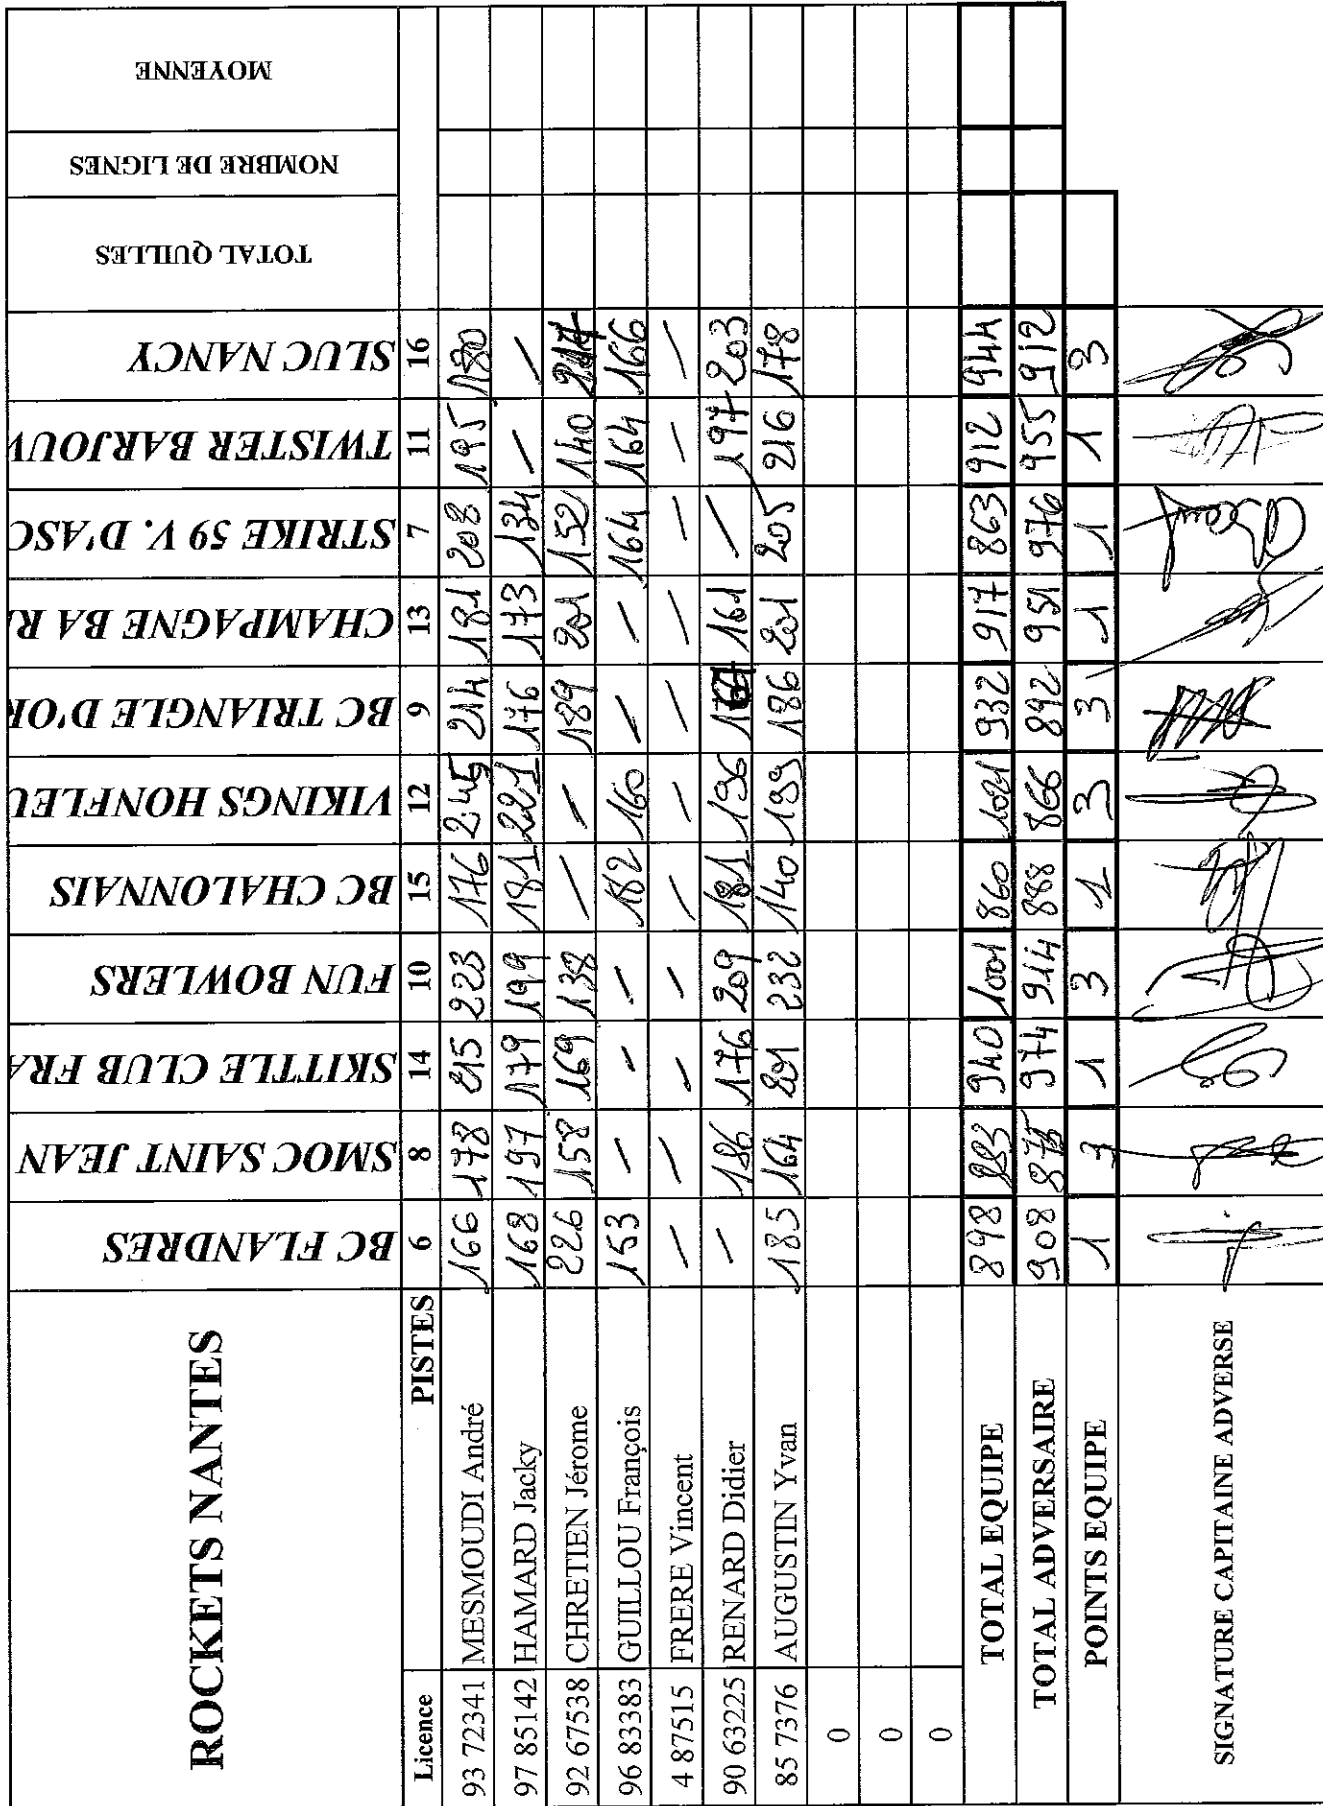 ROCKETS NANTES
BC FLANDRES
SMOC SAINT JEAN
SKITTLE CLUB FRA
FUN BOWLERS
BC CHALONNAIS
VIKINGS HONFLEU
BC TRIANGLE D'OR
CHAMPAGNE BA R
STRIKE 59 V. D'ASC
TWISTER BARJOUV
SLUC NANCY
TOTAL QUILLES
NOMBRE DE LIGNES
MOYENNE
Licence PISTES 6 8 14 10 15 12 9 13 7 11 16
93 72341 MESMOUDI André 166 178 215 223 176 245 214 181 208 195 180
97 85142 HAMARD Jacky 168 197 179 199 181 221 176 173 134 / /
92 67538 CHRETIEN Jérome 226 158 169 138 / / 189 201 152 140 217
96 83383 GUILLOU François 153 / / / 182 160 / / 164 164 166
4 87515 FRERE Vincent / / / / / / / / / / /
90 63225 RENARD Didier / 186 176 209 181 196 167 161 / 197 203
85 7376 AUGUSTIN Yvan 185 164 201 232 140 199 186 201 205 216 178
0
0
0
TOTAL EQUIPE 898 883 940 1001 860 1021 932 917 863 912 944
TOTAL ADVERSAIRE 908 875 974 914 888 866 892 951 976 955 912
POINTS EQUIPE 1 3 1 3 1 3 3 1 1 1 3
SIGNATURE CAPITAINE ADVERSE